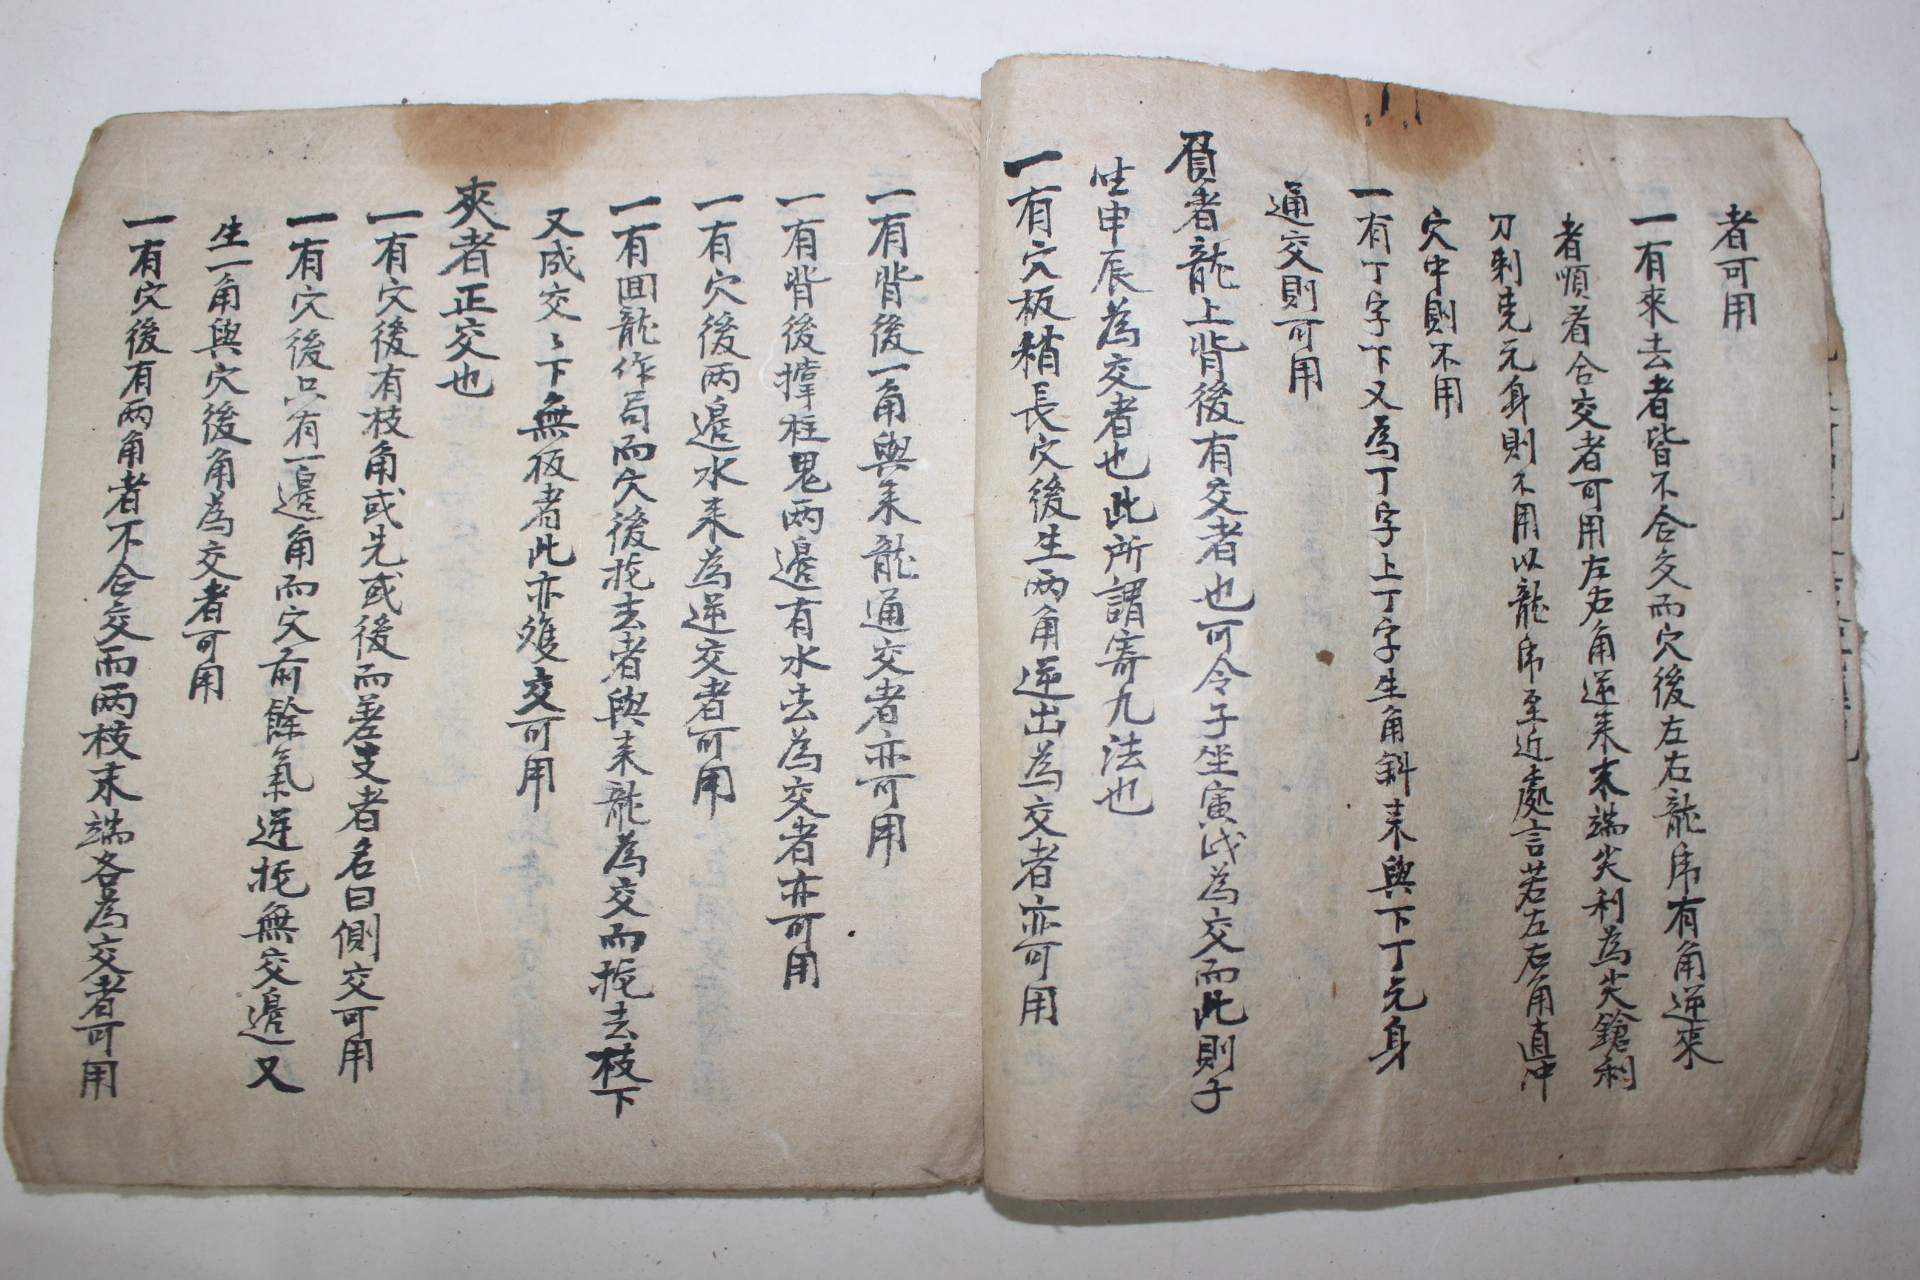 者可用
一有來去者皆不合交而穴後左右龍虎有角逆來
者順者合交者可用左右角逆来末端尖利為尖鎗利
刀刺先元身則不用以龍虎至近處言若左右角直冲
穴中則不用
一有丁字下又為丁字上丁字生角斜来與下丁元身
通交則可用
者龍上背後有交者也可令子坐寅戌為交而此則子
坐申辰為交者也此所謂寄九法也
一有穴板稍長穴後生兩角逆出為交者亦可用
一有背後一角與来龍通交者亦可用
一有背後撑柱鬼两邊有水去為交者亦可用
一有穴後两邊水来為逆交者可用
一有回龍作局而穴後拖去者與来龍為交而拖去枝下
又成交〻下無板者此亦雙交可用
夾者正交也
一有穴後有枝角或先或後而差支者名曰側交可用
一有穴後只有一邊角而穴前餘氣逆拖無交邊又
生一角與穴後角為交者可用
一有穴後有两角者不合交而两枝末端各為交者可用